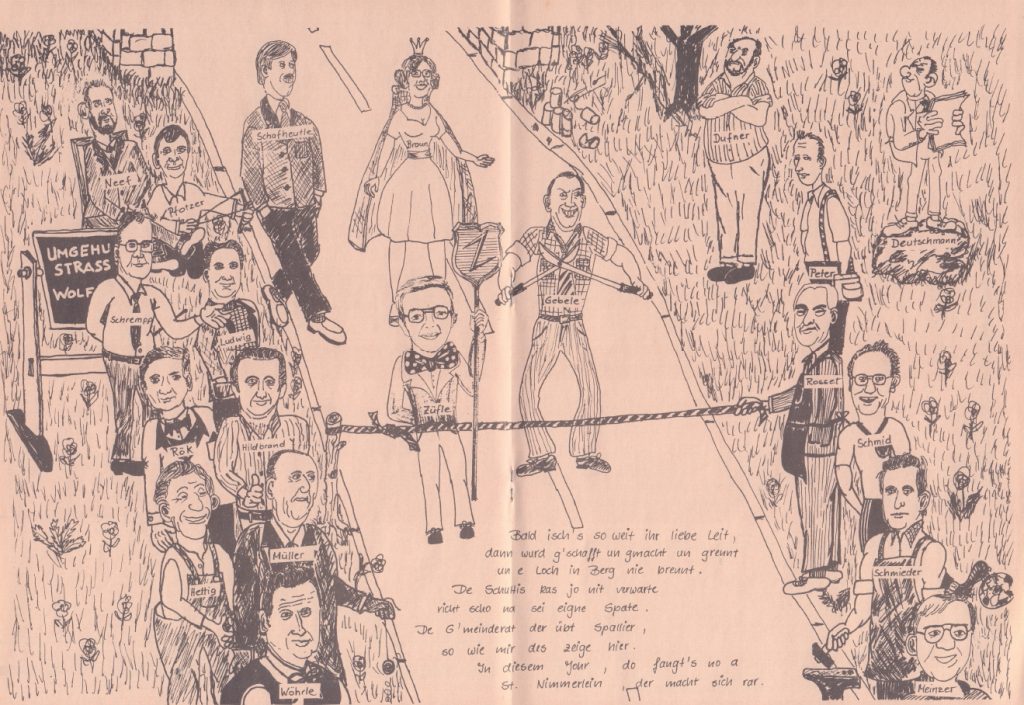 Neef
Pfotzer
Schofheutle
Braun
Dufner
Peter
Deutschmann
UMGEHU
STRASS
WOLF
Schrempp
Ludwig
Gebele
Rosset
Schmid
Rök
Hildbrand
Züfle
Hettig
Müller
Schmieder
Wöhrle
Heinzer
Bald isch's so weit ihr liebe Leit,
dann wurd g'schafft un gmacht un grennt
un e Loch in Berg nie brennt.
De Schultis kas jo nit verwarte
richt scho na sei eigne Spate.
De G'meinderat der übt Spallier,
so wie mir des zeige hier.
In diesem Johr, do fangt's no a
St. Nimmerlein, der macht sich rar.